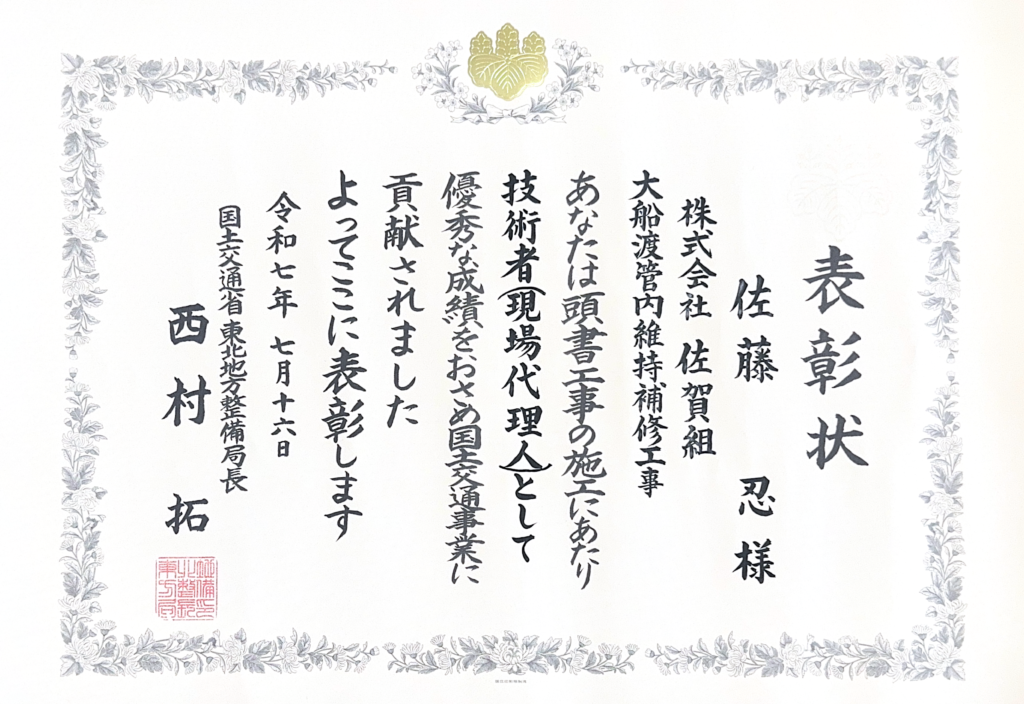 表彰状
佐藤 忍様
株式会社 佐賀組
大船渡管内維持補修工事
あなたは頭書工事の施工にあたり
技術者(現場代理人)として
優秀な成績をおさめ国土交通事業に
貢献されました
よってここに表彰します
令和七年 七月十六日
国土交通省 東北地方整備局長
西村 拓